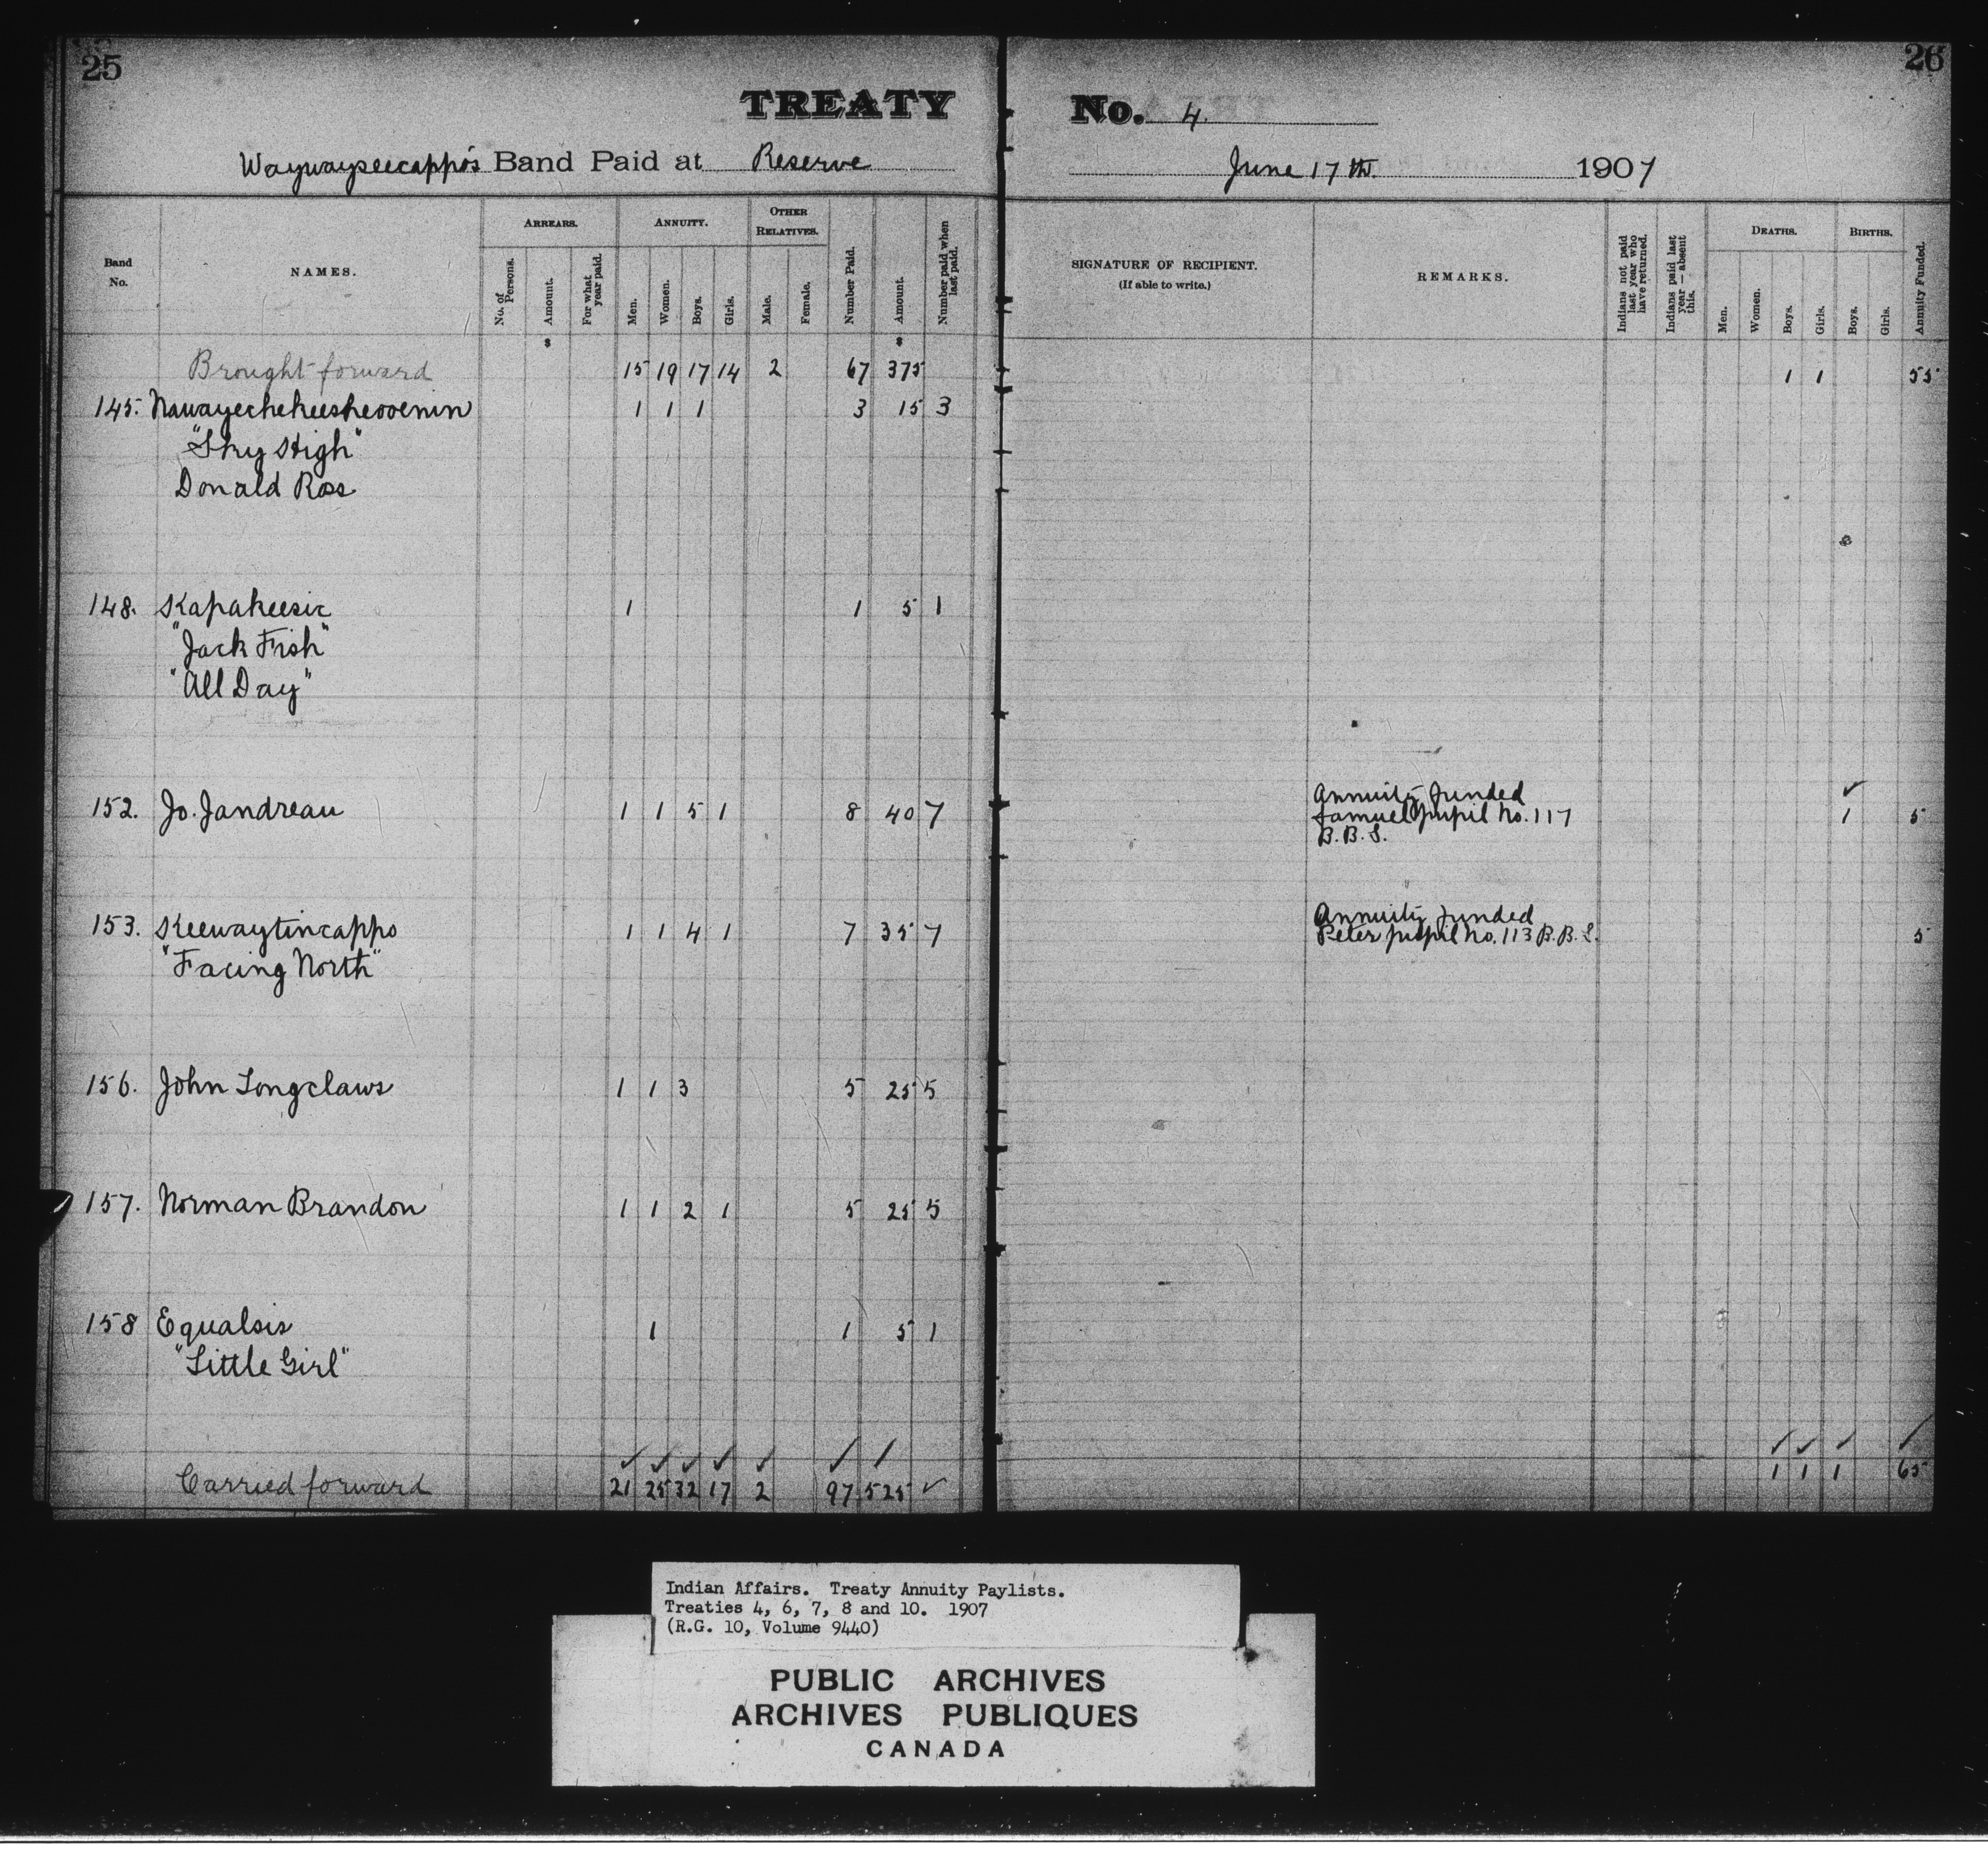 25
26
TREATY No. 4.
Waywayseecappo's Band Paid at Reserve June 17th. 1907
Band No.
NAMES.
ARREARS.
No. of Persons.
Amount.
For what year paid.
ANNUITY.
Men.
Women.
Boys.
Girls.
OTHER RELATIVES.
Male.
Female.
Number Paid.
Amount.
Number paid when last paid.
SIGNATURE OF RECIPIENT.
(If able to write.)
REMARKS.
Indians not paid last year who have returned.
Indians paid last year — absent this.
DEATHS.
Men.
Women.
Boys.
Girls.
BIRTHS.
Boys.
Girls.
Annuity Funded.
$ $
Brought forward 15 19 17 14 2 67 375 1 1 55
145. 1 1 1 3 15 3
"Sky High"
Donald Ross
148. Kapakeesic 1 1 5 1
"Jack Fish"
"All Day"
152. Jo. Jandreau 1 1 5 1 8 40 7 1 5
Annuity funded
Samuel pupil No. 117
B. B. S.
153. Keewaytincappo 1 1 4 1 7 35 7 5
"Facing North"
Annuity funded
Peter pupil No. 113 B. B. S.
156. John Longclaws 1 1 3 5 25 5
157. Norman Brandon 1 1 2 1 5 25 5
158 Equalsis 1 1 5 1
"Little Girl"
✓ ✓ ✓ ✓ ✓ ✓ ✓ ✓ ✓ ✓ ✓
Carried forward 21 25 32 17 2 97 525 ✓ 1 1 1 65
Indian Affairs. Treaty Annuity Paylists.
Treaties 4, 6, 7, 8 and 10. 1907
(R.G. 10, Volume 9440)
PUBLIC ARCHIVES
ARCHIVES PUBLIQUES
CANADA